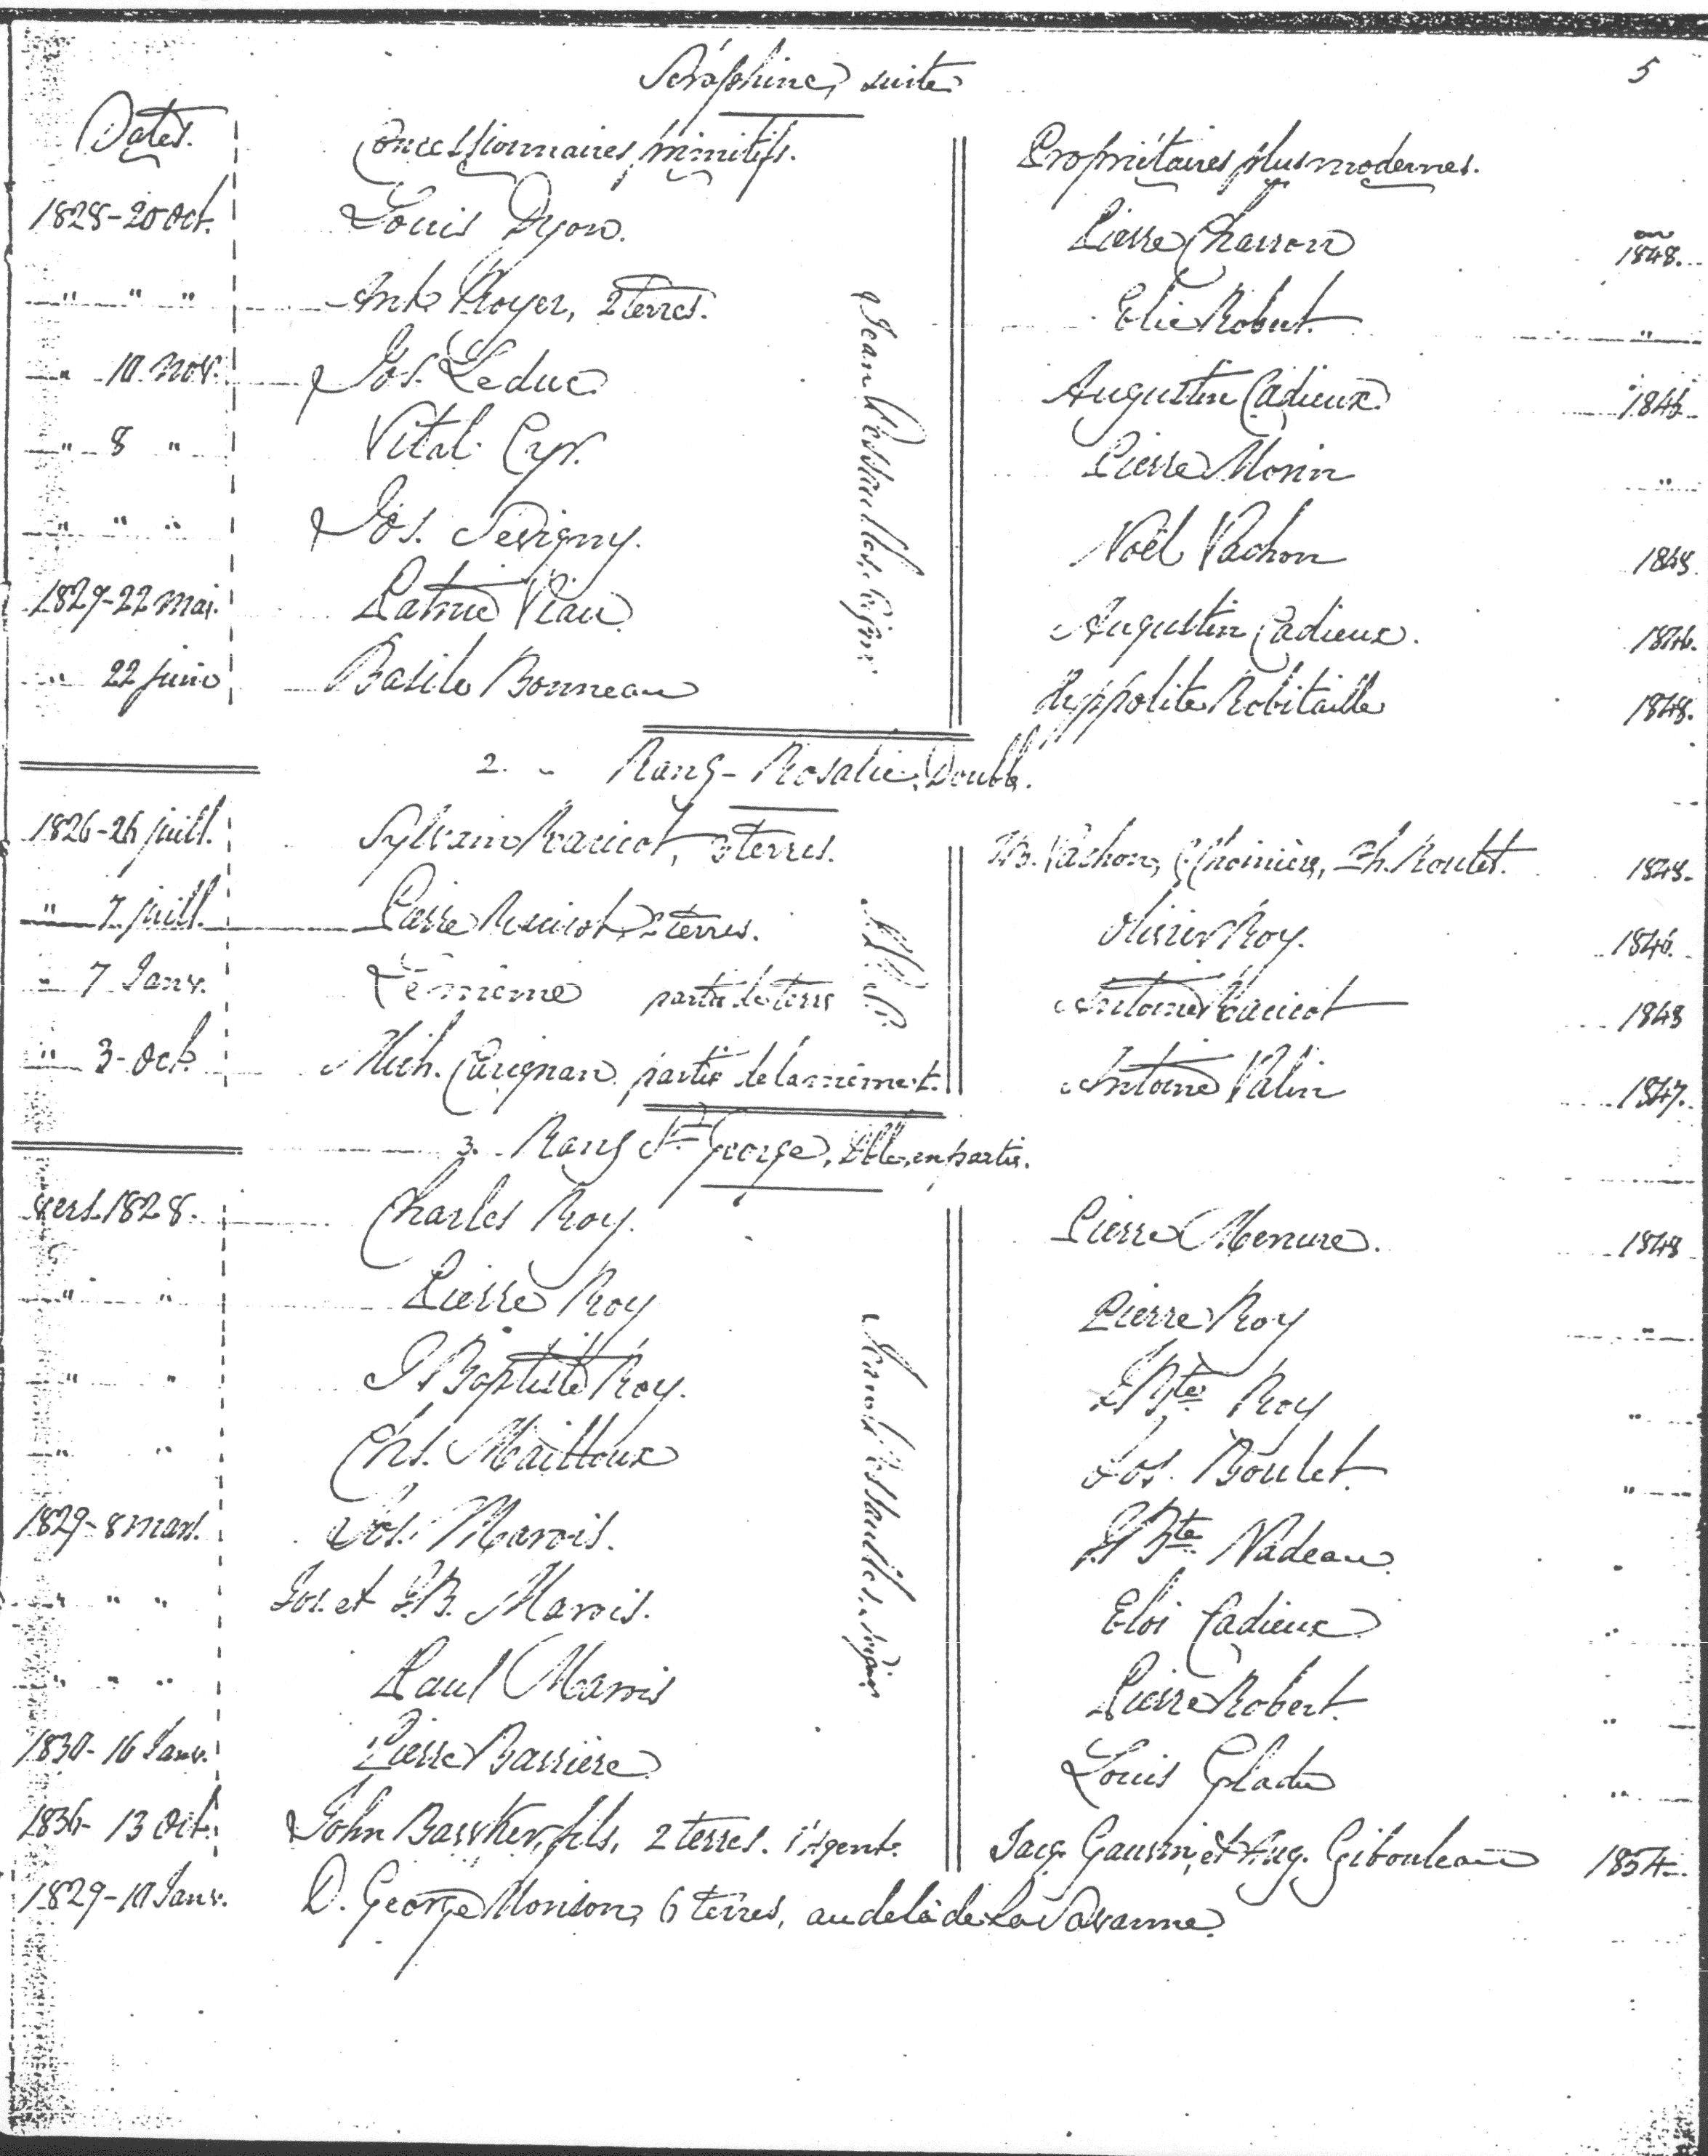 Séraphine, suite. 5
Dates. Concessionnaires primitifs. Propriétaires plus modernes.
1828-20 Oct. Louis Dyon. Pierre Charron en 1848.
" " " Ant. Royer, 2 terres. Elie Robert "
" 10 Nov. Jos. Leduc Augustin Cadieux 1846
" 8 " Vital Cyr. Pierre Morin "
" " " Jos. Sévigny. Noël Vachon 1848
1829-22 mai. Patrice Viau Augustin Cadieux. 1846.
" 22 juin Basile Bonneau Hyppolite Robitaille 1848.
Jean Dessaulles
2. " Rang-Rosalie, Double.
1826-26 juill. Sylvain Racicot, 3 terres. J.B. Vachon, Choinière, Th. Roulet. 1848.
" 7 juill. Pierre Racicot, 2 terres. Olivier Roy. 1846.
" 7 Janv. Le même partie de terre Antoine Racicot 1848
" 3-Oct. Mich. Carignan partie de la même t. Antoine Valin 1847.
3. Rang St. George, Dble, en partie.
vers 1828. Charles Roy. Pierre Menure. 1848
" " Pierre Roy Pierre Roy "
" " J Baptiste Roy. J Bte Roy "
" " Chs. Mailloux Jos. Boulet "
1829-8 mars. Jos. Marois. J Bte Nadeau "
" " " Jos. et J.B. Marois. Eloi Cadieux "
" " " Paul Marois Pierre Robert "
1830-16 Janv. Pierre Barrière Louis Gladu "
Jean Dessaulles, Seignr
1836-13 Oct. John Barrker, fils, 2 terres. l'Agent. Jacq. Gauvin, et Aug. Gibouleau 1854
1829-10 Janv. D. George Morison, 6 terres, au delà de la Savanne.